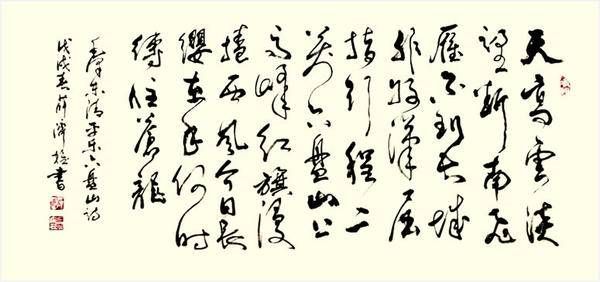 天高雲淡
望斷南飛
雁不到長城
非好漢屈
指行程二
萬六盤山上
高峰紅旗漫
捲西風今日長
纓在手何時
縛住蒼龍
毛澤東清平樂六盤山詩
戊戌春薛澤書